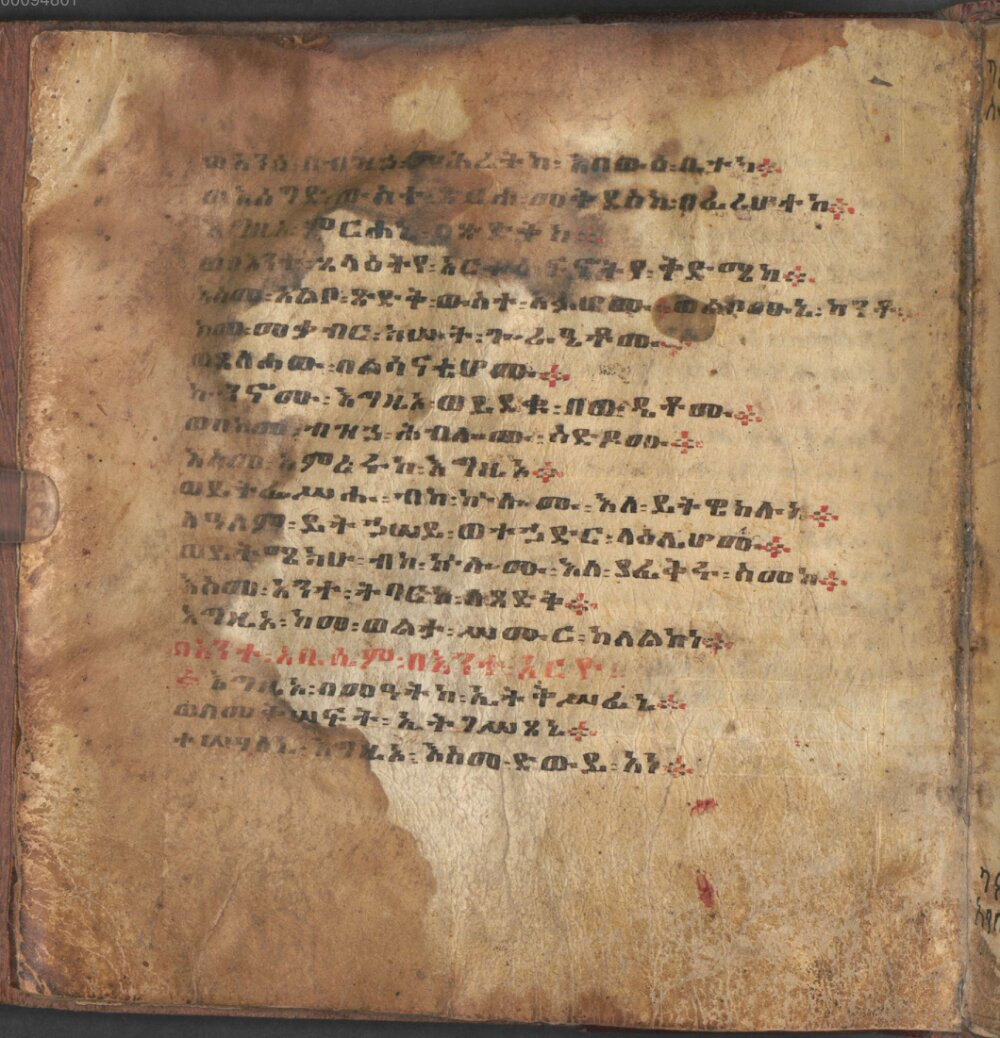 ወአንሰ፡በብዝኃ፡ምሕረትከ፡እበውዕ፡ቤተከ፨
ወእሰግድ፡ውስተ፡ጽርሐ፡መቅደስከ፡በፈሪሆተከ፨
እግዚኦ፡ምርሐኒ፡በጽድቅከ፨
ወበእንተ፡ጸላዕትየ፡አርትዕ፡ፍኖትየ፡ቅድሜከ፨
እስመ፡አልቦ፡ጽድቅ፡ውስተ፡አፉሆሙ፡ወልቦሙኒ፡ከንቱ፨
ከመ፡መቃብር፡ክሡት፡ጐራዒቶሙ፨
ወጸልሐው፡በልሳናቲሆሙ፨
ኰንኖሙ፡እግዚኦ፡ወይደቁ፡በውዴቶሙ፨
ወበከመ፡ብዝኃ፡ሕብሎሙ፡ስድዶሙ፨
እስመ፡አምረሩከ፡እግዚኦ፨
ወይትፌሥሑ፡ብከ፡ኵሎሙ፡እለ፡ይትዌከሉ፡ብከ፨
ለዓለም፡ይትኃሠዩ፡ወተኃድር፡ላዕሌሆሙ፨
ወይትሜክሑ፡ብከ፡ኵሎሙ፡እለ፡ያፈቅሩ፡ስመከ፨
እስመ፡አንተ፡ትባርኮ፡ለጻድቅ፨
እግዚኦ፡ከመ፡ወልታ፡ሥሙር፡ከለልከነ፨
በእንተ፡አቤሴሎም፡በእንተ፡
፮ እግዚኦ፡በመዓትከ፡ኢትቅሥፈኒ፨
ወበመቅሠፍት፡ኢትገሥጸኒ፨
ተሣሃለኒ፡እግዚኦ፡እስመ፡ድውይ፡አነ፨